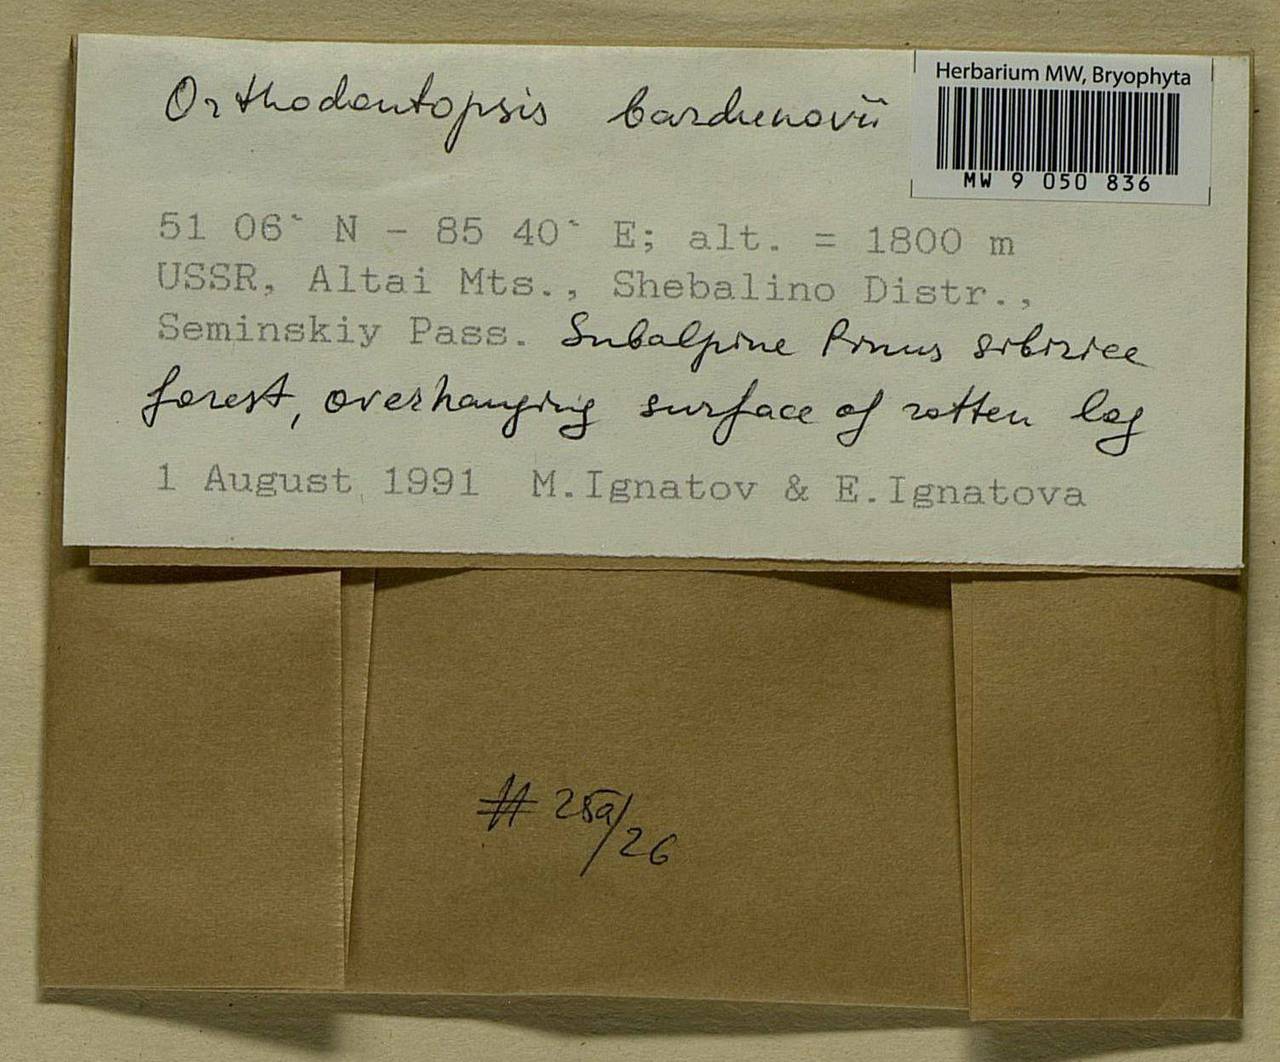 Herbarium MW, Bryophyta
MW 9 050 836
Orthodontopsis bardunovii
51 06` N - 85 40` E; alt. = 1800 m
USSR, Altai Mts., Shebalino Distr.,
Seminskiy Pass. Subalpine Pinus sibirica
forest, overhanging surface of rotten log
1 August 1991 M.Ignatov & E.Ignatova
# 25a/26